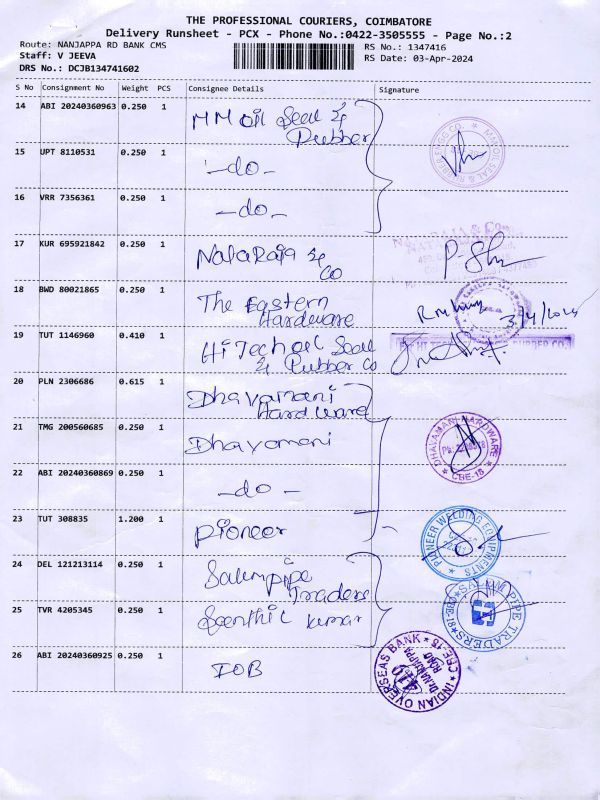 THE PROFESSIONAL COURIERS, COIMBATORE
Delivery Runsheet - PCX - Phone No.:0422-3505555 - Page No.:2
Route: NANJAPPA RD BANK CMS
RS No.: 1347416
Staff: V JEEVA
RS Date: 03-Apr-2024
DRS No.: DCJB134741602
S No Consignment No Weight PCS Consignee Details Signature
14 ABI 20240360963 0.250 1 MM Oil Seal &
Rubber
15 UPT 8110531 0.250 1 -do-
16 VRR 7356361 0.250 1 -do-
17 KUR 695921842 0.250 1 Nataraja &
Co
18 BWD 80021865 0.250 1 The Eastern
Hardware
3/4/2024
19 TUT 1146960 0.410 1 HiTech oil Seal
& Rubber Co
20 PLN 2306686 0.615 1 Dhavamani
Hardware
21 TMG 200560685 0.250 1 Dhavamani
DHAVAMANI HARDWARE
CBE-18
22 ABI 20240360869 0.250 1 -do-
23 TUT 308835 1.200 1 Pioneer
PIONEER WELDING EQUIPMENTS
24 DEL 121213114 0.250 1 Salempipe
Traders
SALEM PIPE TRADERS
CBE-18
25 TVR 4205345 0.250 1 Senthil Kumar
26 ABI 20240360925 0.250 1 IOB
INDIAN OVERSEAS BANK
CBE-18
Dr. NANJAPPA
ROAD